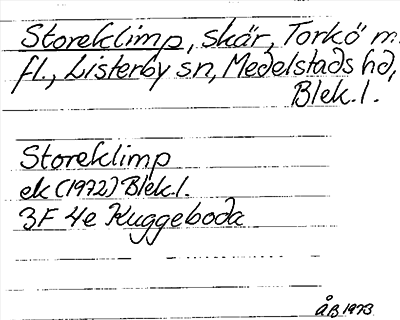 Storeklimp, skär, Torkö m.
fl., Listerby sn, Medelstads hd,
Blek.l.
Storeklimp
ek (1972) Blek.l.
3F 4e Kuggeboda
ÅB 1973